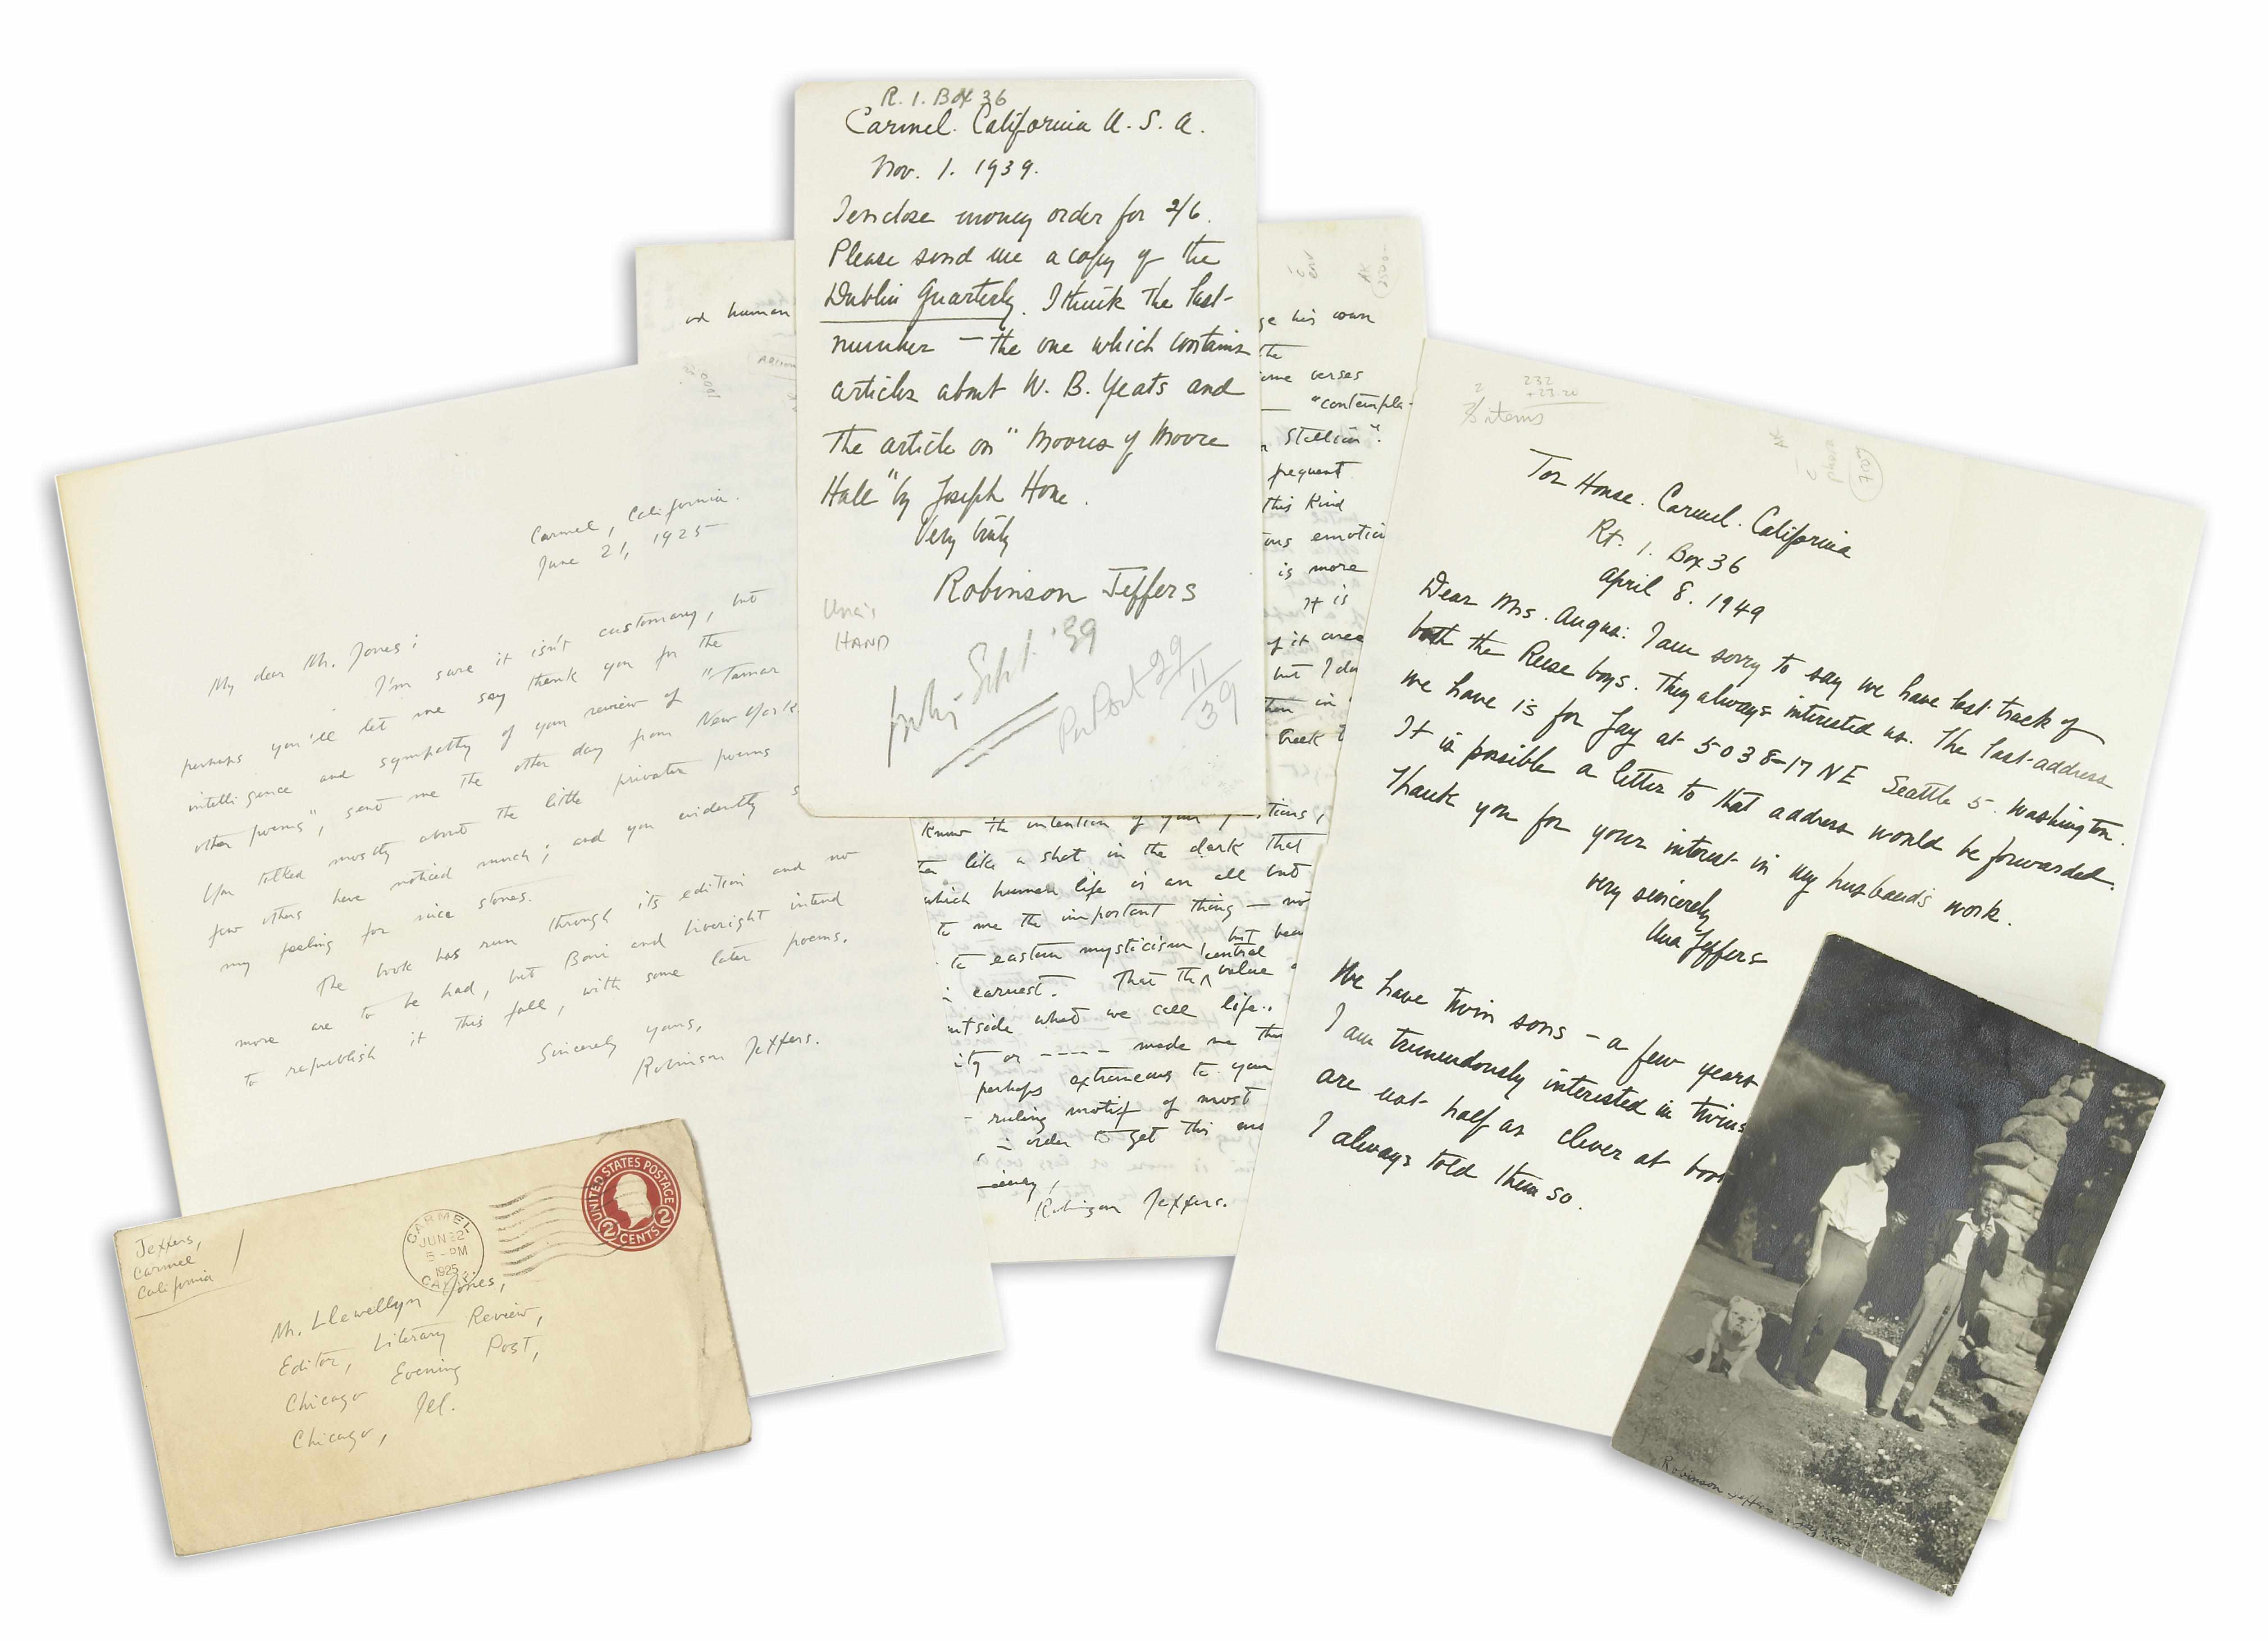 Carmel, California.
June 21, 1925
My dear Mr. Jones:
I'm sure it isn't customary, but
perhaps you'll let me say thank you for the
intelligence and sympathy of your review of "Tamar
other poems", sent me the other day from New York.
You talked mostly about the little private poems
few others have noticed much; and you evidently
my feeling for nice stones.
The book has run through its edition and no
more are to be had, but Boni and Liveright intend
to republish it this fall, with some later poems.
Sincerely yours,
Robinson Jeffers.
Jeffers,
Carmel
California
CARMEL
JUN 2
5-PM
1925
UNITED STATES POSTAGE
2 CENTS 2
Mr. Llewellyn Jones,
Editor, Literary Review,
Chicago Evening Post,
Chicago, Ill.
R. 1. Box 36
Carmel. California U. S. A.
Nov. 1. 1939.
I enclose money order for 2/6.
Please send me a copy of the
Dublin Quarterly. I think the last
number — the one which contains
articles about W. B. Yeats and
the article on "Moores of Moore
Hall" by Joseph Hone.
Very truly
Robinson Jeffers
Una's
HAND
Sept. '39
29/11/39
human
his own
the
verses
"contempla-
Stallion".
frequent
this kind
emotion
is more
It is
of it
but I do
in
Greek
know the intention of your
like a shot in the dark that
which human life is an all but
to me the important thing — no
to eastern mysticism, but
earnest. That the central value
outside what we call life..
or ---- made me
perhaps extraneous to your
ruling motif of most
in order to get this
Robinson Jeffers.
232
+23.20
items
Tor House. Carmel. California
Rt. 1. Box 36
April 8. 1949
Dear Mrs. Angus: I am sorry to say we have lost track of
both the Reese boys. They always interested us. The last address
we have is for Jay at 5038-17 NE Seattle 5. Washington.
It is possible a letter to that address would be forwarded.
Thank you for your interest in my husband's work.
very sincerely
Una Jeffers
We have twin sons — a few years
I am tremendously interested in twins
are not half as clever at
I always told them so.
Robinson Jeffers